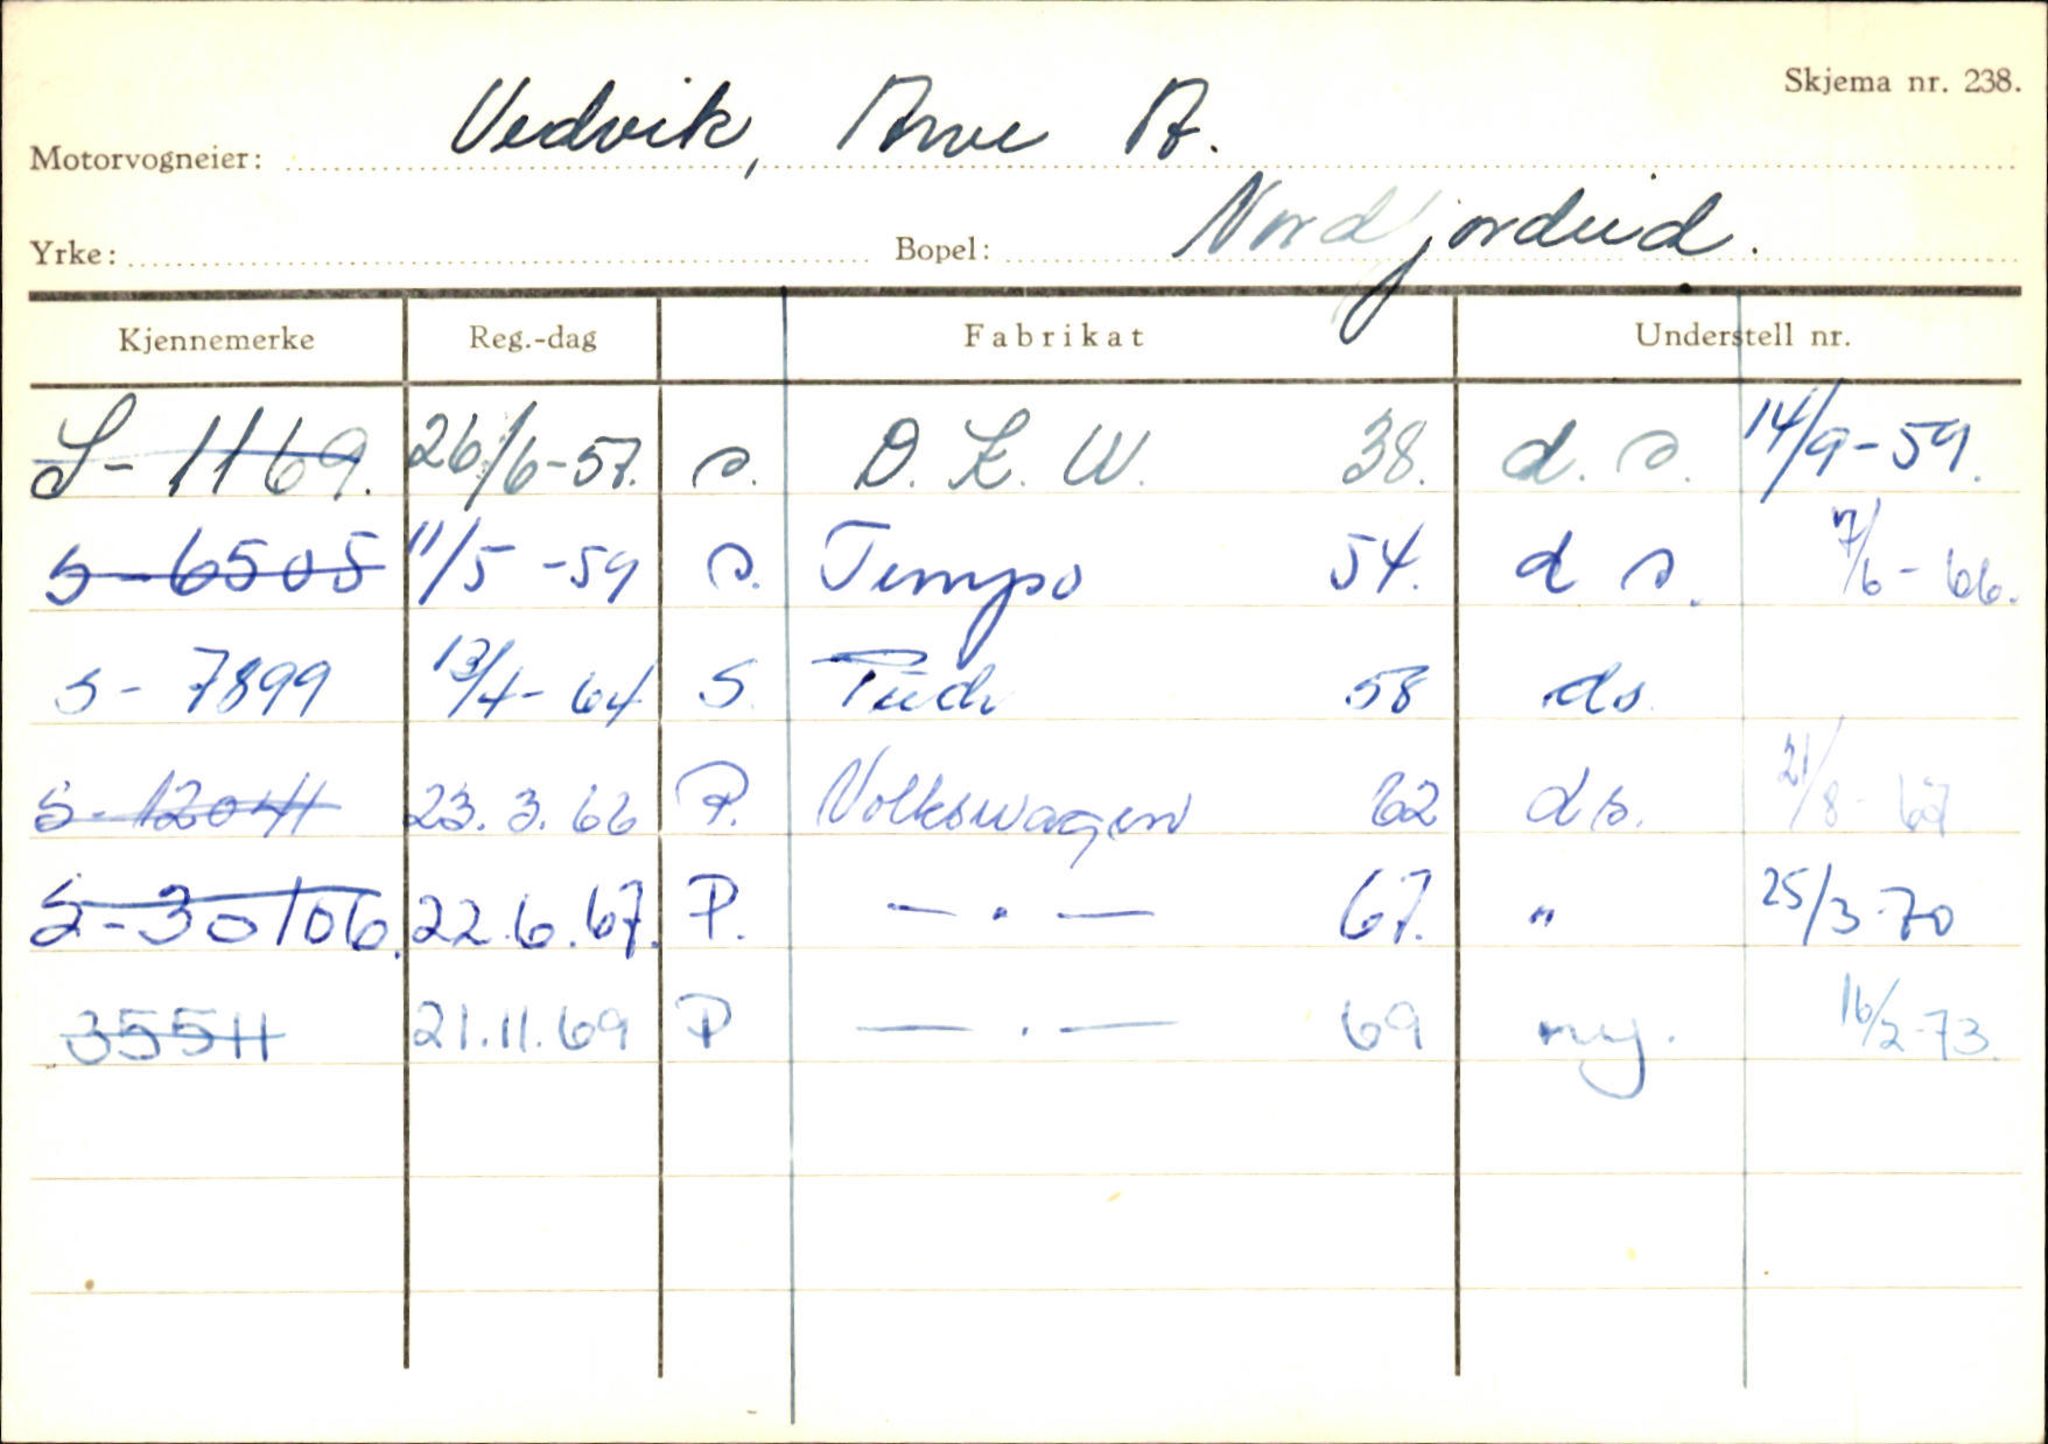 Skjema nr. 238.
Motorvogneier: Vedvik, Arve A.
Yrke: Bopel: Nordfjordeid.
Kjennemerke Reg.-dag Fabrikat Understell nr.
S- 1169. 26/6-57. s. D.K.W. 38. d. s. 14/9-59.
S-6505 11/5 -59 s. Tempo 54. d s. 7/6-66.
S- 7899 13/4-64 S. Püch 58 ds.
S-12041 23.3.66 P. Volkswagen 62 ds. 21/8-67
S-30106. 22.6.67. P. — . — 67. " 25/3-70
35511 21.11.69 P — . — 69 ny. 16/2-73.